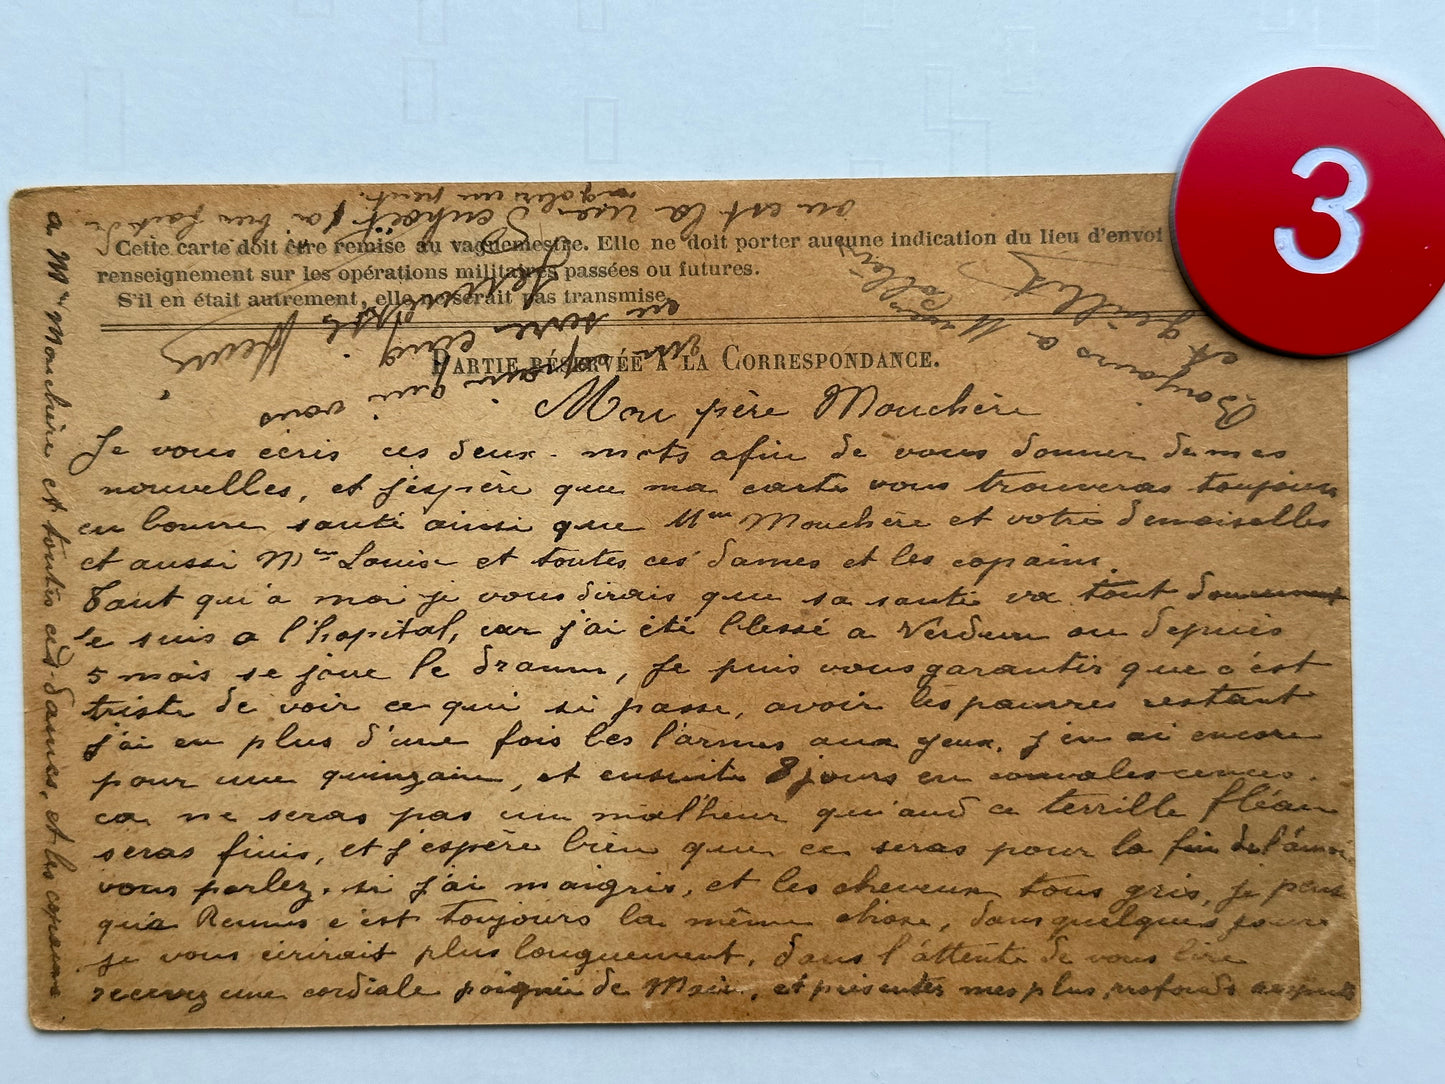 3
Cette carte doit être remise au vaguemestre. Elle ne doit porter aucune indication du lieu d'envoi
renseignement sur les opérations militaires passées ou futures.
S'il en était autrement, elle ne serait pas transmise.
PARTIE RÉSERVÉE A LA CORRESPONDANCE.
Mon père Mouchère
Je vous écris ces deux mots afin de vous donner de mes
nouvelles, et j'espère que ma carte vous trouveras toujours
en bonne santé ainsi que Mme Mouchère et votre demoiselles
et aussi Mme Louise et toutes ces dames et les copains.
Tant qui à moi je vous dirais que sa santé va tout doucement
Je suis a l'hopital, car j'ai été blessé a Verdun ou depuis
5 mois se joue le drame, Je puis vous garantir que c'est
triste de voir ce qui si passe, avoir les pauvres restant
j'ai eu plus d'une fois les l'armes aux yeux. J'en ai encore
pour une quinzaine, et ensuite 8 jours en convalescences.
ca ne seras pas un malheur qu'and ce terrille fléau
seras finis, et j'espère bien que ce seras pour la fin de l'année
vous parlez. si j'ai maigris, et les cheveux tous gris, je pense
qu'a Rennes c'est toujours la même chose, dans quelques jours
je vous écrirait plus longuement, dans l'attente de vous lire
recevez une cordiale poignée de Main, et présentés mes plus profonds respects
a Mme Mouchère et toutes cés dames, et les copains
Bonjours a
ou est la
qui vous